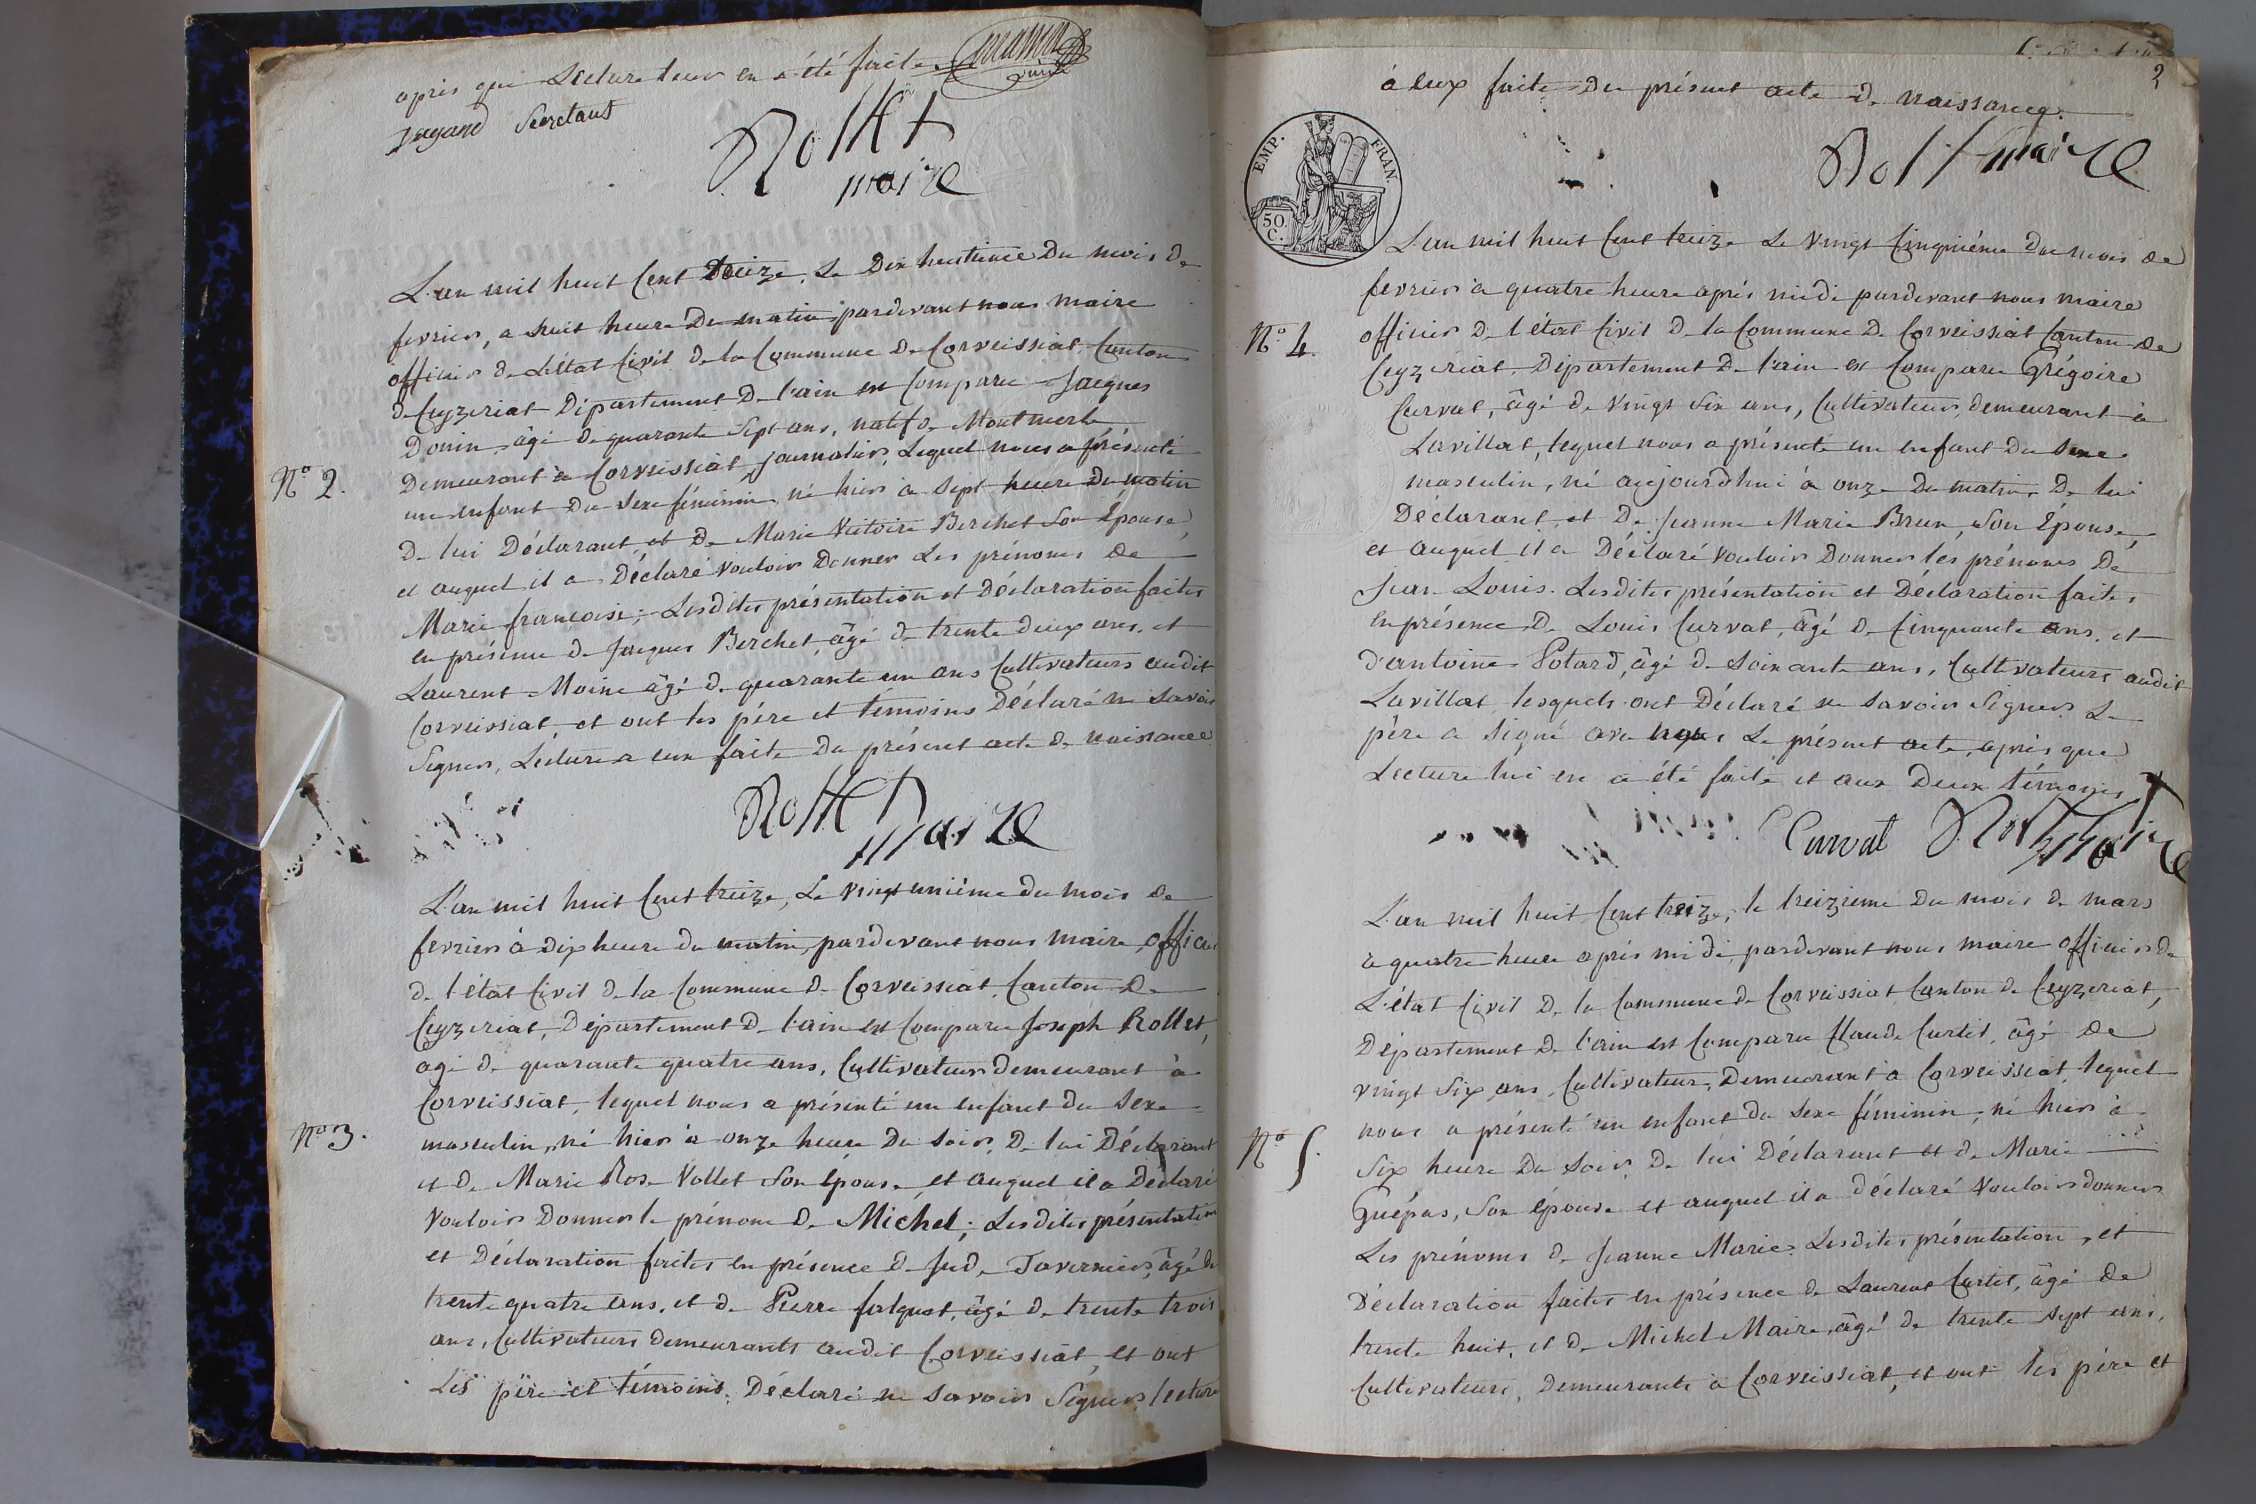 après que Lecture leur en a été faite
Secretaut
Rollet
maire
L'an mil huit Cent treize, Le Dix huitieme Du mois De
fevrier, a huit heure Du matin, pardevant nous maire
officier de L'état Civil de la Commune De Corveissiat, Canton
de Ceyzeriat Département De l'ain est Comparu Jacques
Donin, âgé de quarante Sept ans, natif de Montmerle
N.o 2.
Demeurant à Corveissiat, journalier, Lequel nous a présenté
un enfant du Sexe féminin né hier à Sept heure Du matin
De lui Déclarant, et De Marie Victoire Berchet Son Épouse,
et auquel il a Déclaré vouloir Donner Les prénoms de
Marie francoise; Lesdites présentation et Déclaration faites
en présence de Jacques Berchet, âgé de trente deux ans, et
Laurent Moine âgé de quarante un ans Cultivateurs audit
Corveissiat, et ont les père et témoins Déclaré ne Savoir
Signer, Lecture a eux faite Du présent acte de naissance
Rollet
maire
L'an mil huit Cent treize, Le vingt unième du mois de
fevrier à Dix heure du matin, pardevant nous maire, officier
de l'état Civil de la Commune de Corveissiat, Canton De
Ceyzeriat, Département De l'ain est Comparu Joseph Rollet,
agé de quarante quatre ans, Cultivateur demeurant à
Corveissiat, lequel nous a présenté un enfant du Sexe
N.o 3.
masculin, né hier à onze heure Du soir, De lui Déclarant
et de Marie Rose Vollet Son épouse et auquel il a Déclaré
Vouloir Donner le prénom De Michel; Lesdites présentation
et Déclaration faites en présence de Jude Tavernier, âgé de
trente quatre ans, et de Pierre falquet, âgé de trente trois
ans, Cultivateurs demeurants audit Corveissiat, et ont
Les père et témoins Déclaré ne savoir Signer, lecture
2
à eux faite Du présent acte de naissance.
Rollet maire
EMP. FRAN.
50 C.
L'an mil huit Cent treize Le Vingt Cinquiéme du mois de
fevrier à quatre heure après midi pardevant nous maire
N.o 4.
officier De l'état Civil De la Commune De Corveissiat Canton de
Ceyzeriat, Département De l'ain est Comparu Grégoire
Curvat, âgé de Vingt Six ans, Cultivateur, demeurant à
Lavillat, lequel nous a présenté un enfant Du Sexe
masculin, né aujourdhui à onze Du matin, De lui
Déclarant, et De Jeanne Marie Brun, Son Épouse,
et auquel il a Déclaré vouloir Donner les prénoms De
Jean Louis. Lesdites présentation et Déclaration faites
en présence De Louis Curvat, âgé de Cinquante ans, et
d'antoine Potard, âgé de Soixante ans, Cultivateurs audit
Lavillat, lesquels ont Déclaré ne savoir Signer. Le
père a Signé avec nous Le présent acte, après que
Lecture lui en a été faite et aux Deux témoins
Curvat Rollet maire
L'an mil huit Cent treize, le treizieme Du mois de mars
à quatre heure après midi, pardevant nous maire officier de
L'état Civil De la Commune de Corveissiat Canton de Ceyzeriat,
Département De l'ain est Comparu Claude Curtet, âgé De
vingt Six ans, Cultivateur, Demeurant à Corveissiat, lequel
nous a présenté un enfant du Sexe féminin, né hier à
N.o 5.
Six heure Du Soir, De lui Déclarant et de Marie
Guépas, Son épouse et auquel il a déclaré Vouloir donner
Les prénoms de Jeanne Marie. Lesdites présentation, et
Déclaration faites en présence de Laurent Curtet, âgé de
trente huit, et De Michel Maire, âgé de trente sept ans,
Cultivateurs, Demeurants à Corveissiat, et ont les père et